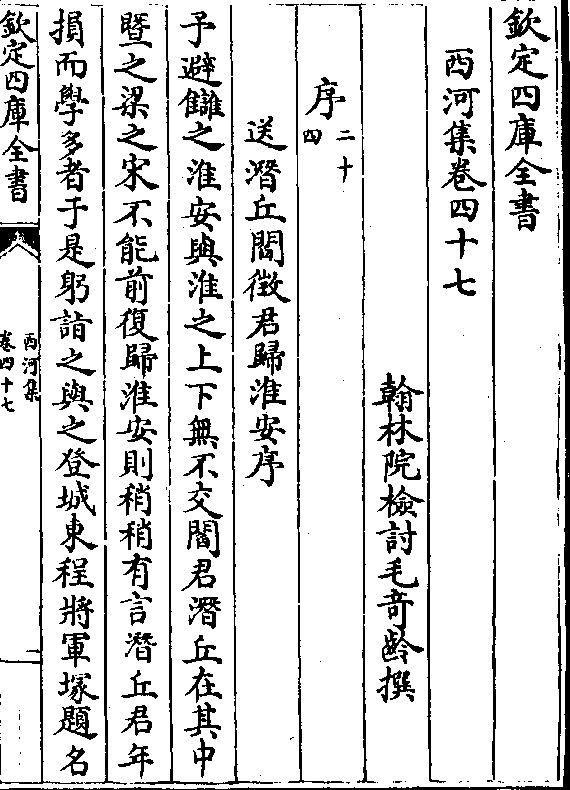 欽定四庫全書
西河集卷四十七
翰林院檢討毛奇齡撰
序二十四
送潛丘閻徵君歸淮安序
予避讎之淮安與淮之上下無不交閻君潛丘在其中
暨之梁之宋不能前復歸淮安則稍稍有言潛丘君年
損而學多者于是躬詣之與之登城東程將軍塚題名
欽定四庫全書
西河集
卷四十七
一